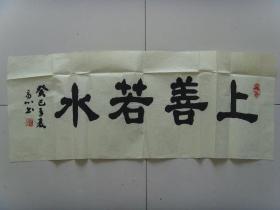 上善若水
癸巳年夏